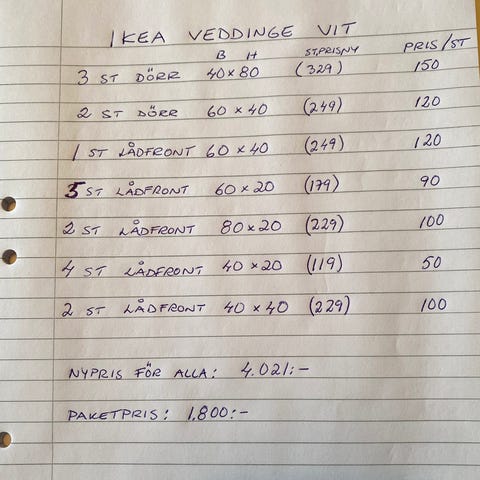 IKEA VEDDINGE VIT
B H ST.PRISNY PRIS/ST
3 ST DÖRR 40×80 (329) 150
2 ST DÖRR 60×40 (249) 120
1 ST LÅDFRONT 60×40 (249) 120
5 ST LÅDFRONT 60×20 (179) 90
2 ST LÅDFRONT 80×20 (229) 100
4 ST LÅDFRONT 40×20 (119) 50
2 ST LÅDFRONT 40×40 (229) 100
NYPRIS FÖR ALLA: 4.021:-
PAKETPRIS: 1.800:-